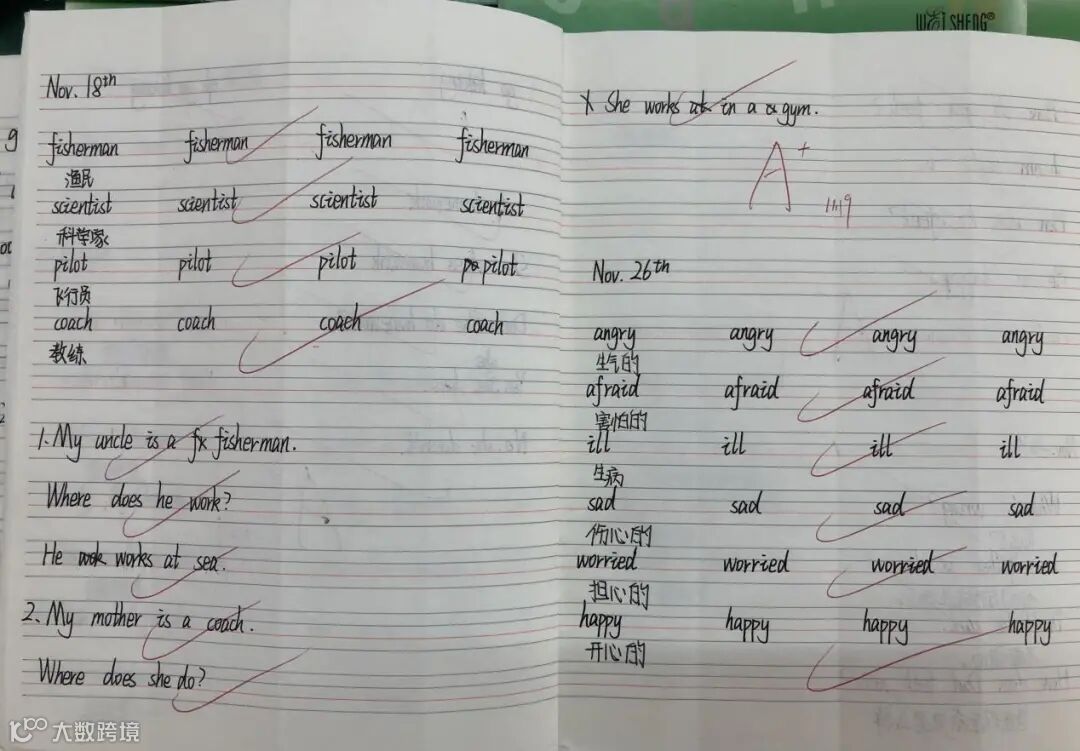 Nov. 18th
fisherman fisherman fisherman fisherman
渔民
scientist scientist scientist scientist
科学家
pilot pilot pilot pilot
飞行员
coach coach coach coach
教练
1. My uncle is a fisherman.
Where does he work?
He works at sea.
2. My mother is a coach.
Where does she do?
山水 SHENG®
X She works in a gym.
A+
11.19
Nov. 26th
angry angry angry angry
生气的
afraid afraid afraid afraid
害怕的
ill ill ill ill
生病
sad sad sad sad
伤心的
worried worried worried worried
担心的
happy happy happy happy
开心的
大数跨境